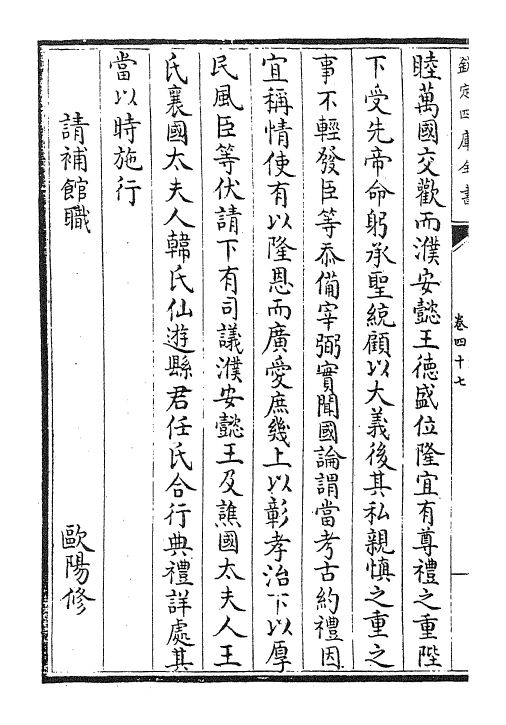 欽定四庫全書
卷四十七
睦萬國交歡而濮安懿王德盛位隆宜有尊禮之重陛
下受先帝命躬承聖統顧以大義後其私親慎之重之
事不輕發臣等忝備宰弼實聞國論謂當考古約禮因
宜稱情使有以隆恩而廣愛庶幾上以彰孝治下以厚
民風臣等伏請下有司議濮安懿王及譙國太夫人王
氏襄國太夫人韓氏仙遊縣君任氏合行典禮詳處其
當以時施行
請補館職
歐陽修